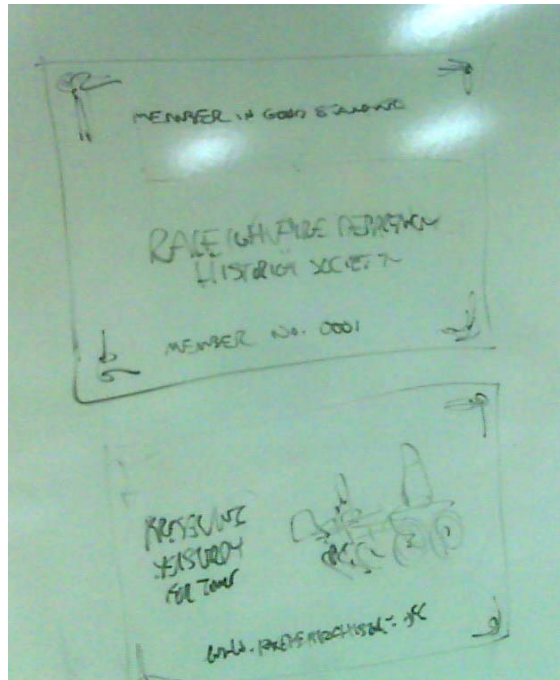 MEMBER IN GOOD STANDING
RALEIGH FIRE DEPARTMENT
HISTORICAL SOCIETY
MEMBER NO. 0001
PRESERVING
YESTERDAY
FOR TOMORROW